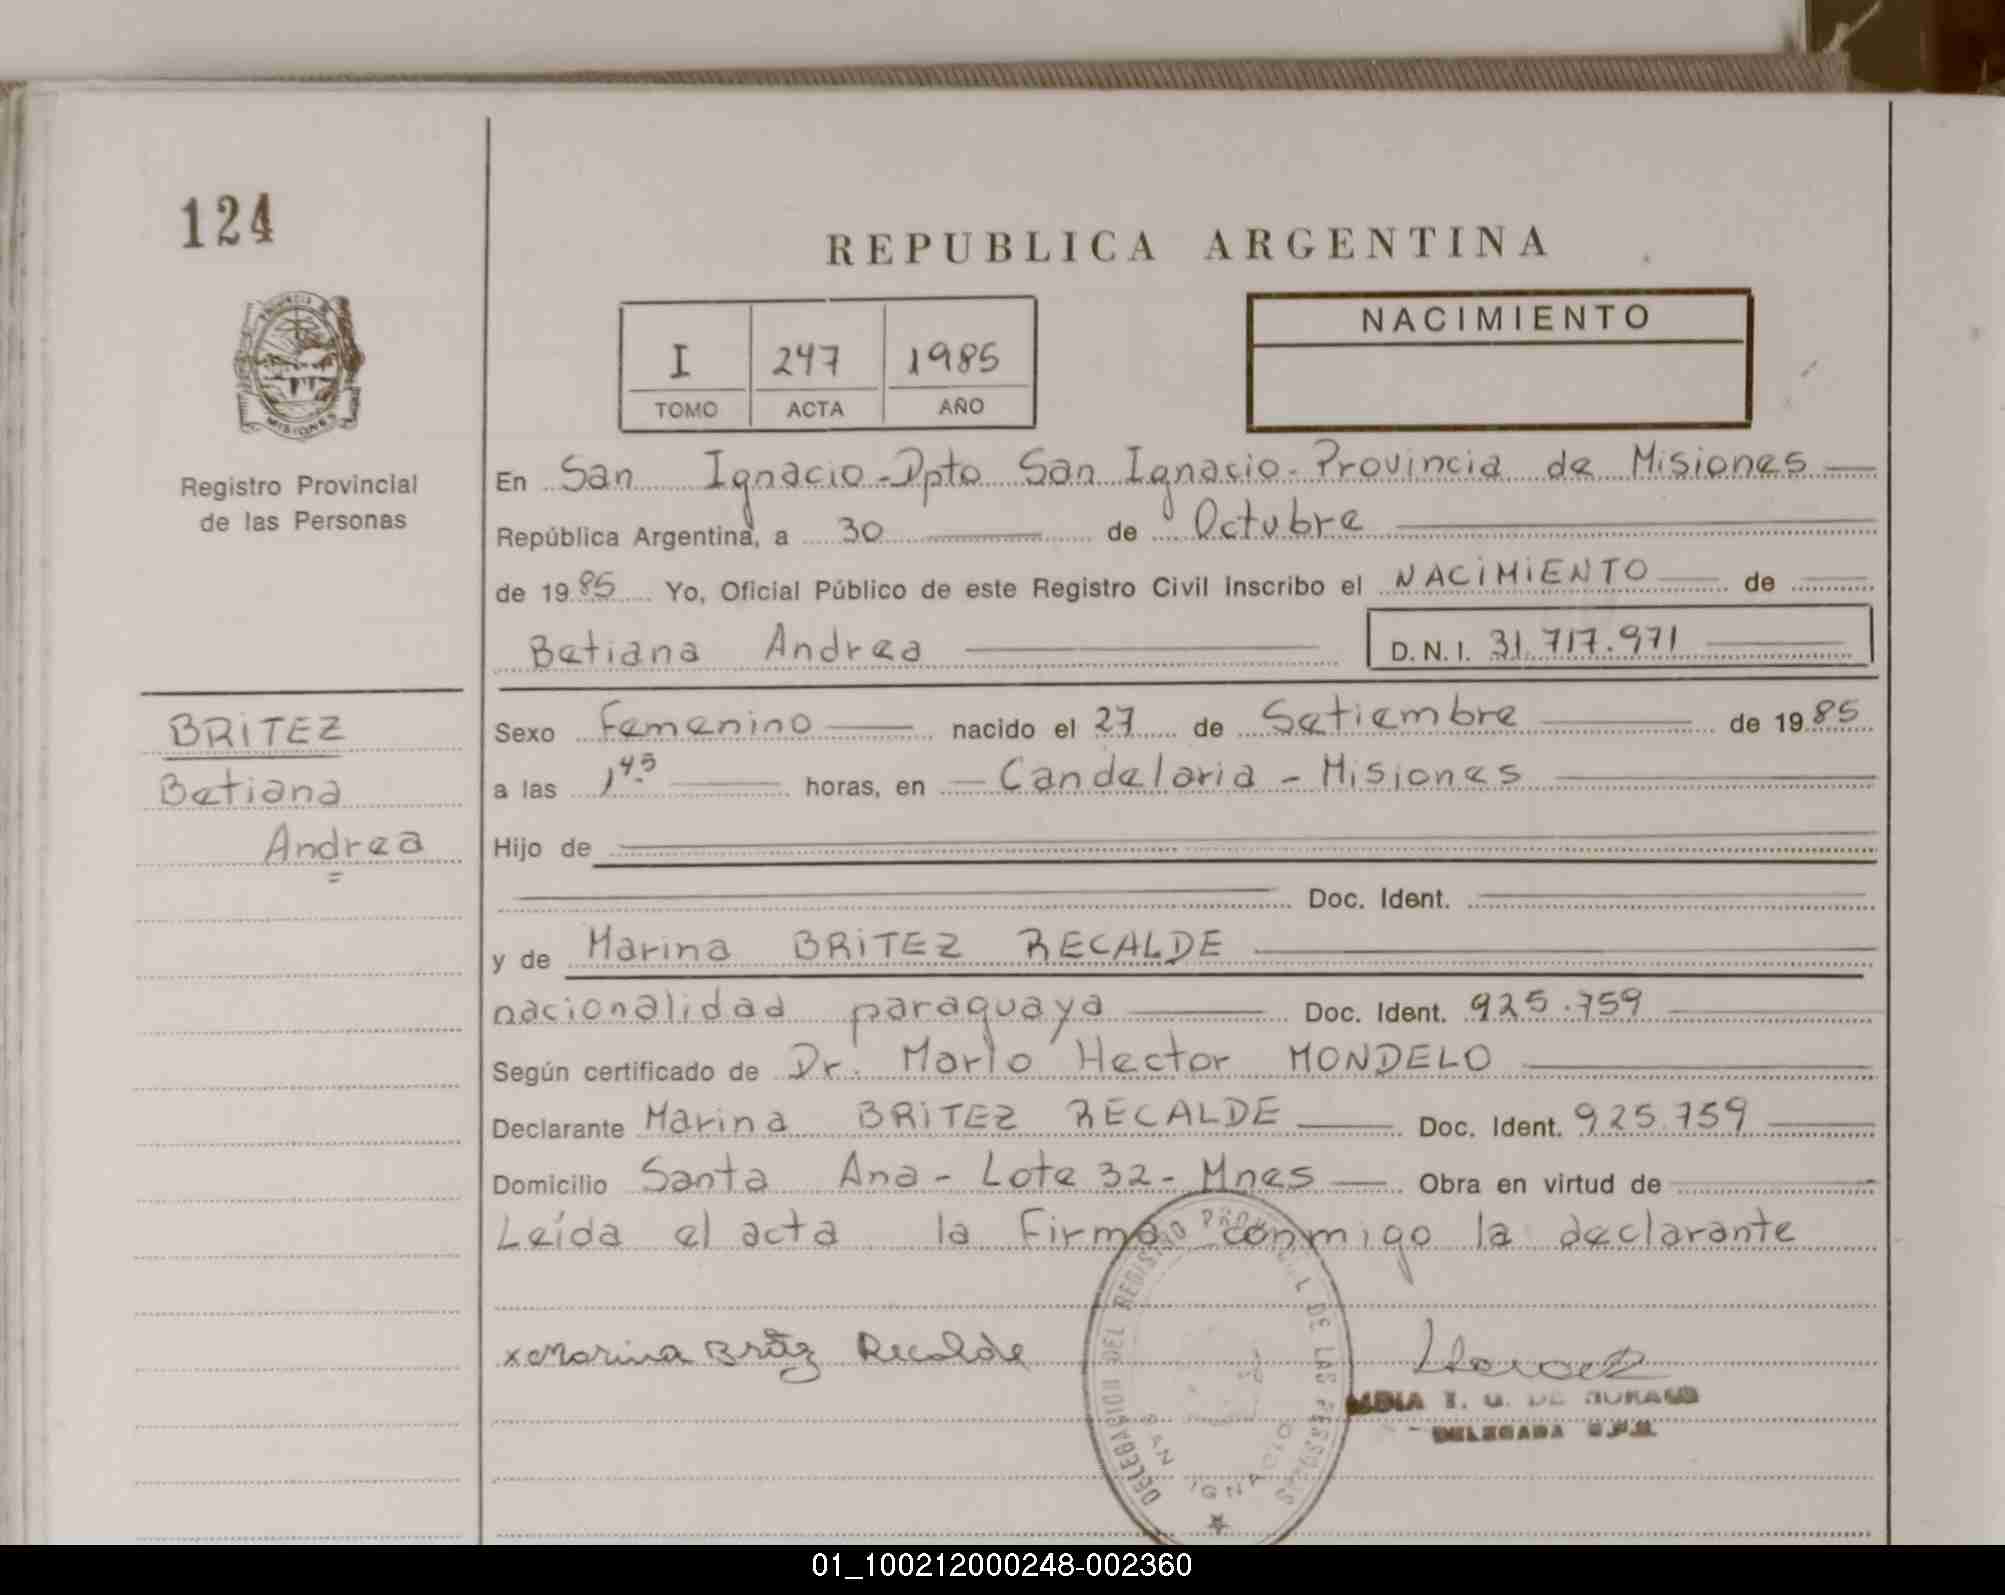 124
REPUBLICA ARGENTINA
PROVINCIA DE
MISIONES
Registro Provincial
de las Personas
I 247 1985
TOMO ACTA AÑO
NACIMIENTO
En San Ignacio - Dpto San Ignacio - Provincia de Misiones
República Argentina, a 30 de Octubre
de 1985 Yo, Oficial Público de este Registro Civil inscribo el NACIMIENTO de
Betiana Andrea D.N.I. 31.717.971
BRITEZ
Betiana
Andrea
Sexo Femenino nacido el 27 de Setiembre de 1985
a las 1 45 horas, en Candelaria - Misiones
Hijo de
Doc. Ident.
y de Marina BRITEZ RECALDE
nacionalidad paraguaya Doc. Ident. 925.759
Según certificado de Dr. Mario Hector MONDELO
Declarante Marina BRITEZ RECALDE Doc. Ident. 925.759
Domicilio Santa Ana - Lote 32 - Mnes Obra en virtud de
Leída el acta la Firma conmigo la declarante
x Marina Britez Recalde
DELEGACION DEL REGISTRO PROVINCIAL DE LAS PERSONAS
SAN IGNACIO
DELEGADA
01_100212000248-002360